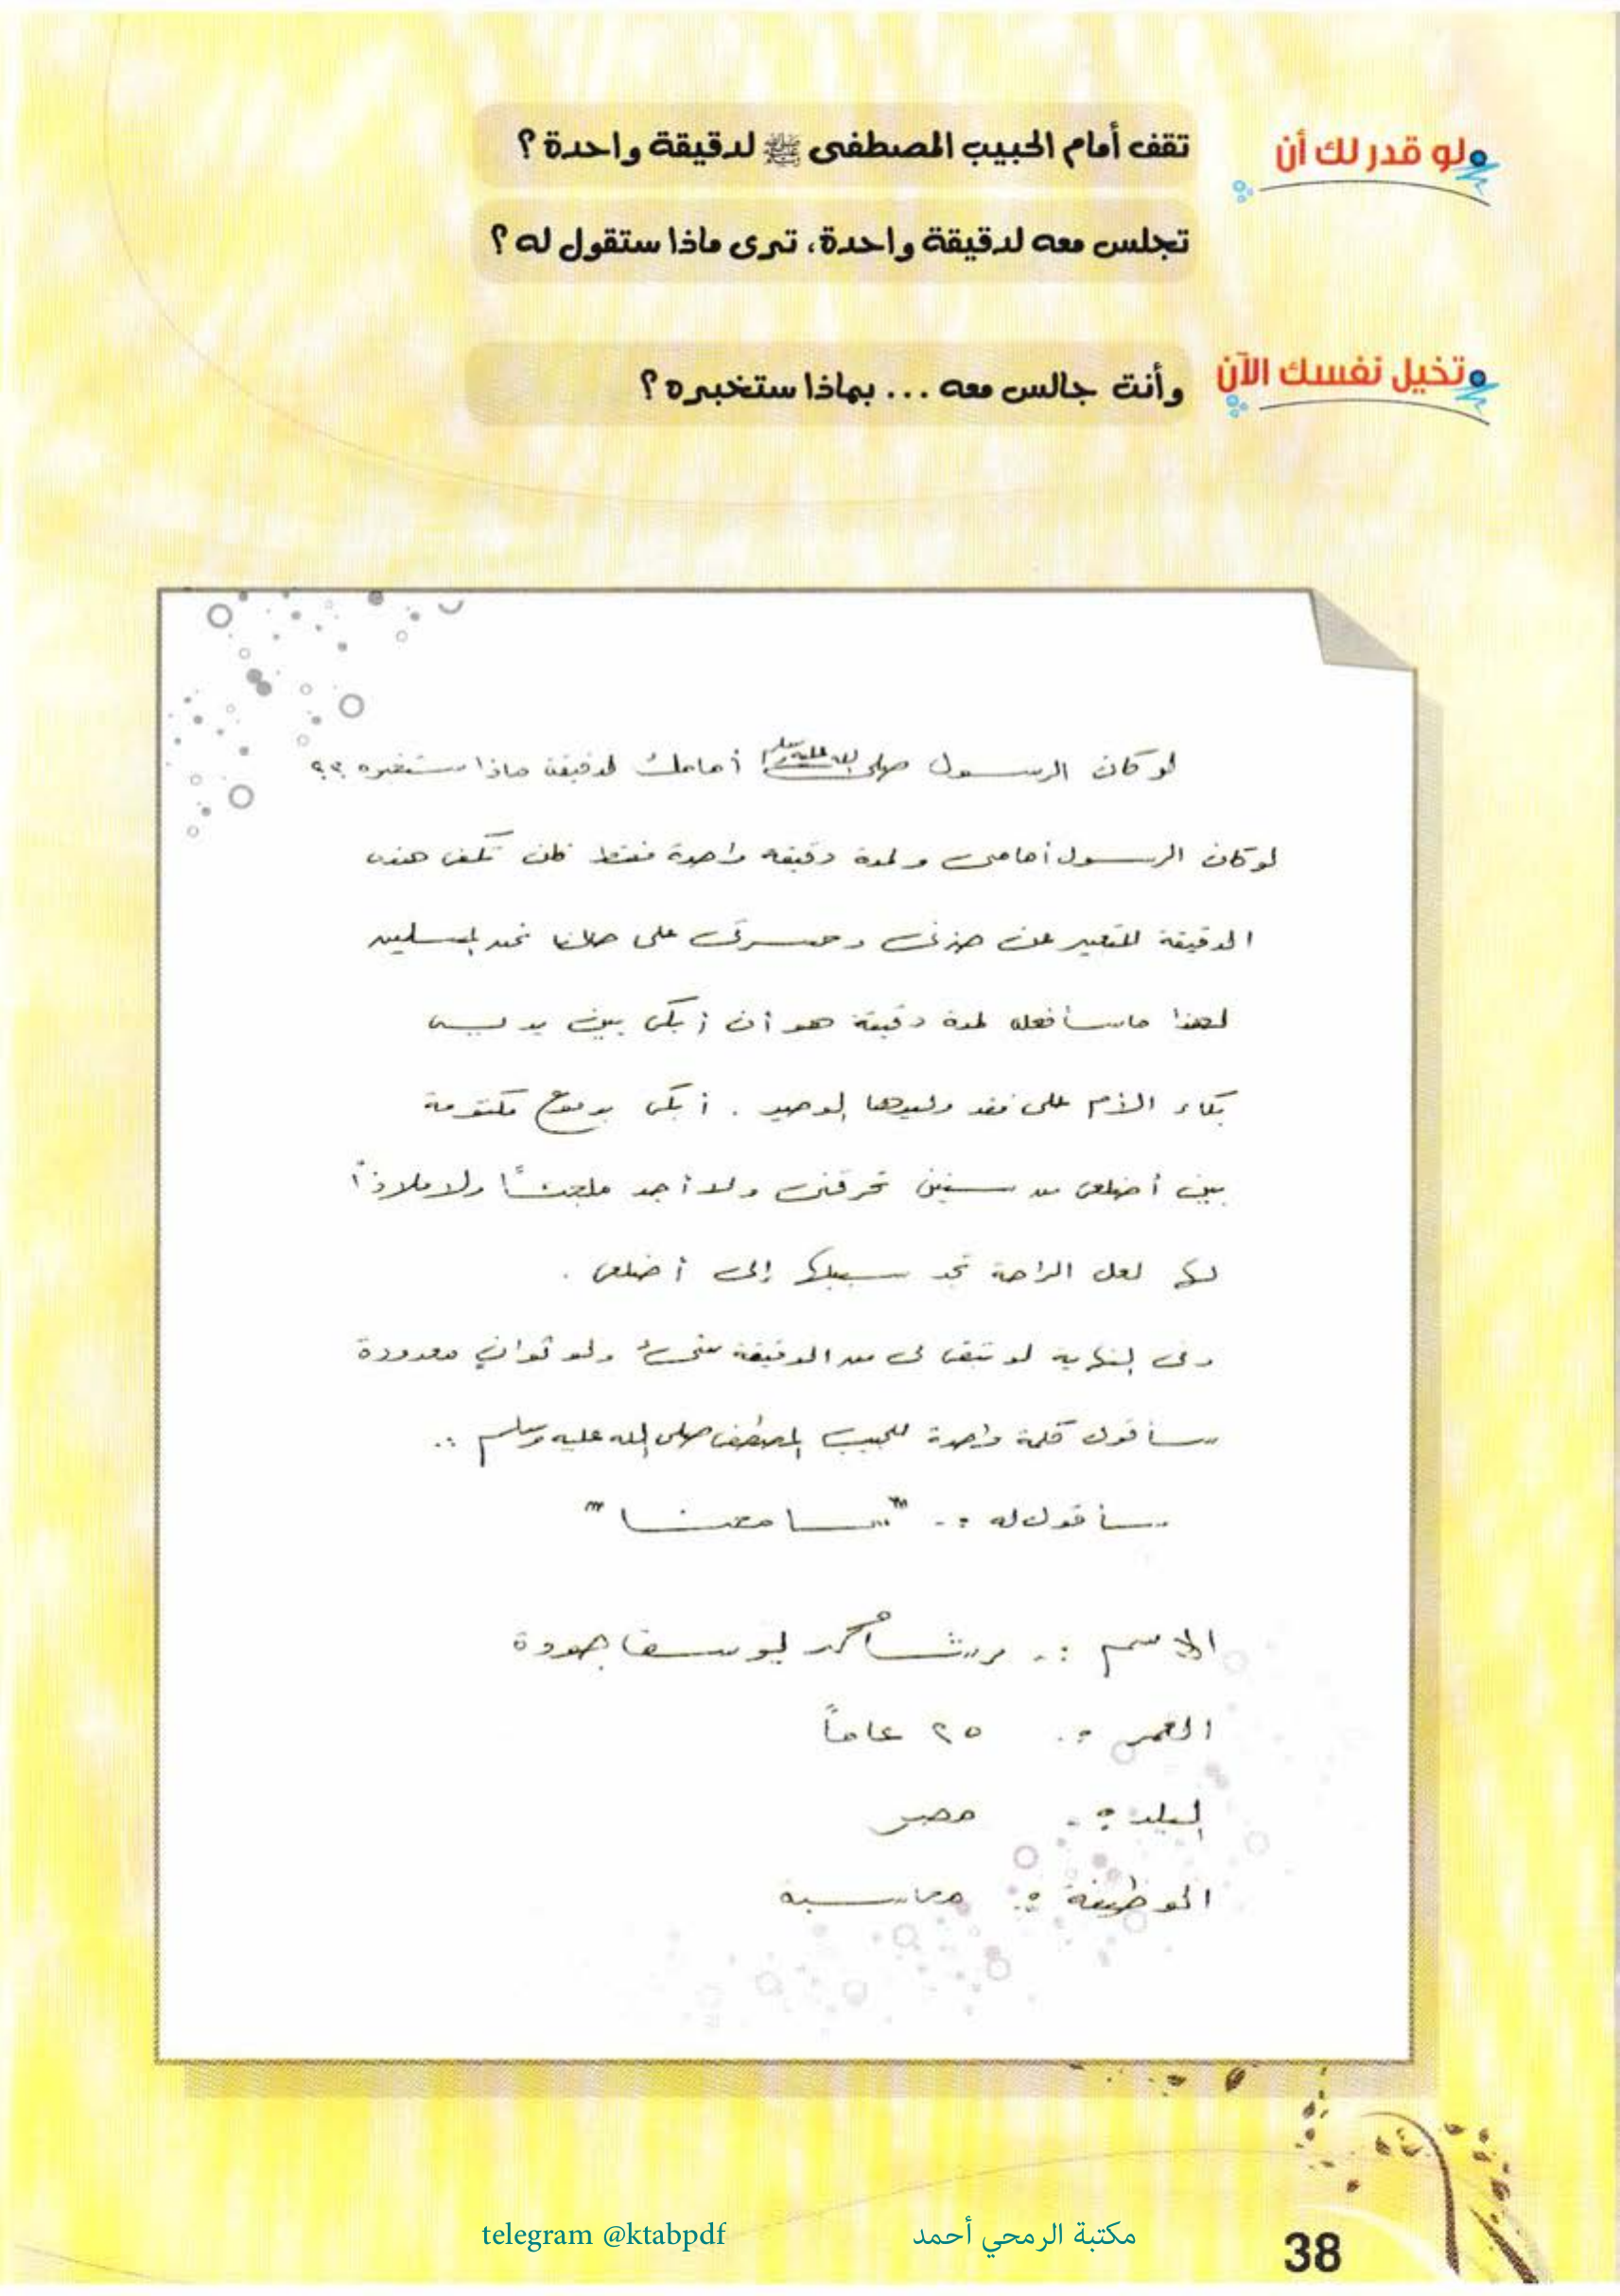 لو قدر لك أن
تقف أمام الحبيب المصطفى ﷺ لدقيقة واحدة ؟
تجلس معه لدقيقة واحدة، ترى ماذا ستقول له ؟
تخيل نفسك الآن
وأنت جالس معه ... بماذا ستخبره ؟
لو كان الرسول صلى الله عليه وسلم أمامك لدقيقة ماذا ستخبره ؟؟
لو كان الرسول أمامى ولمدة دقيقه واحدة فقط فلن تكفى هذه
الدقيقة للتعبير عن حزنى وحسرتى على حالنا نحن المسلمين
لهذا ما سأفعله لمدة دقيقة هو أن أبكى بين يديه
بكاء الأم على فقد وليدها الوحيد . أبكى بدموع مكتومة
بين أضلعى من سنين تحرقنى ولا أجد ملجئاً ولا ملاذاً
لها لعل الراحة تجد سبيلها إلى أضلعى .
وفى النهاية لو تبقى لى من الدقيقة شىء ولو ثوانٍ معدودة
سأقول كلمة واحدة للحبيب المصطفى صلى الله عليه وسلم :.
سأقول له :. " سامحنا "
الاسم :. يوسف جودة
العمر :. ٢٥ عاماً
البلد :. مصر
الوظيفة :. محاسبة
telegram @ktabpdf مكتبة الرمحي أحمد
38